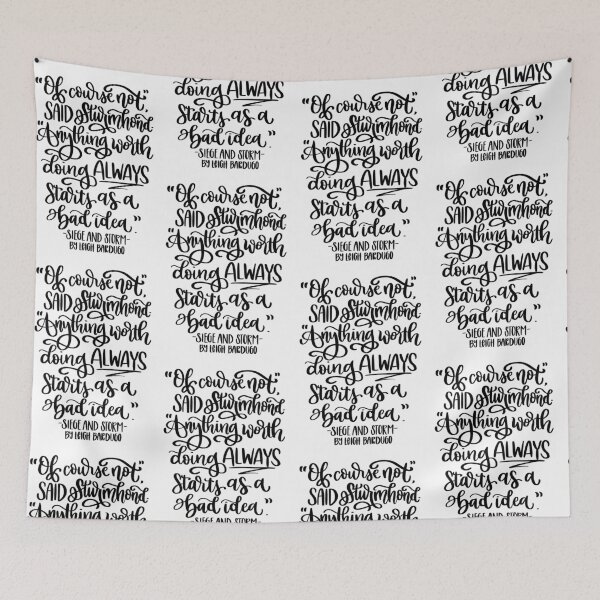 "Of course not,"
SAID Sturmhond.
"Anything worth
doing ALWAYS
Starts as a
bad idea."
-SIEGE AND STORM-
BY LEIGH BARDUGO
"Of course not,"
SAID Sturmhond.
"Anything worth
doing ALWAYS
Starts as a
bad idea."
-SIEGE AND STORM-
BY LEIGH BARDUGO
"Of course not,"
SAID Sturmhond.
"Anything worth
doing ALWAYS
Starts as a
bad idea."
-SIEGE AND STORM-
BY LEIGH BARDUGO
"Of course not,"
SAID Sturmhond.
"Anything worth
doing ALWAYS
Starts as a
bad idea."
-SIEGE AND STORM-
BY LEIGH BARDUGO
"Of course not,"
SAID Sturmhond.
"Anything worth
doing ALWAYS
Starts as a
bad idea."
-SIEGE AND STORM-
"Of course not,"
SAID Sturmhond.
"Anything worth
doing ALWAYS
Starts as a
bad idea."
-SIEGE AND STORM-
BY LEIGH BARDUGO
"Of course not,"
SAID Sturmhond.
"Anything worth
doing ALWAYS
Starts as a
bad idea."
-SIEGE AND STORM-
BY LEIGH BARDUGO
"Of course not,"
SAID Sturmhond.
"Anything worth
doing ALWAYS
Starts as a
bad idea."
-SIEGE AND STORM-
BY LEIGH BARDUGO
"Of course not,"
SAID Sturmhond.
"Anything worth
doing ALWAYS
Starts as a
bad idea."
-SIEGE AND STORM-
BY LEIGH BARDUGO
"Of course not,"
SAID Sturmhond.
"Anything worth
doing ALWAYS
Starts as a
bad idea."